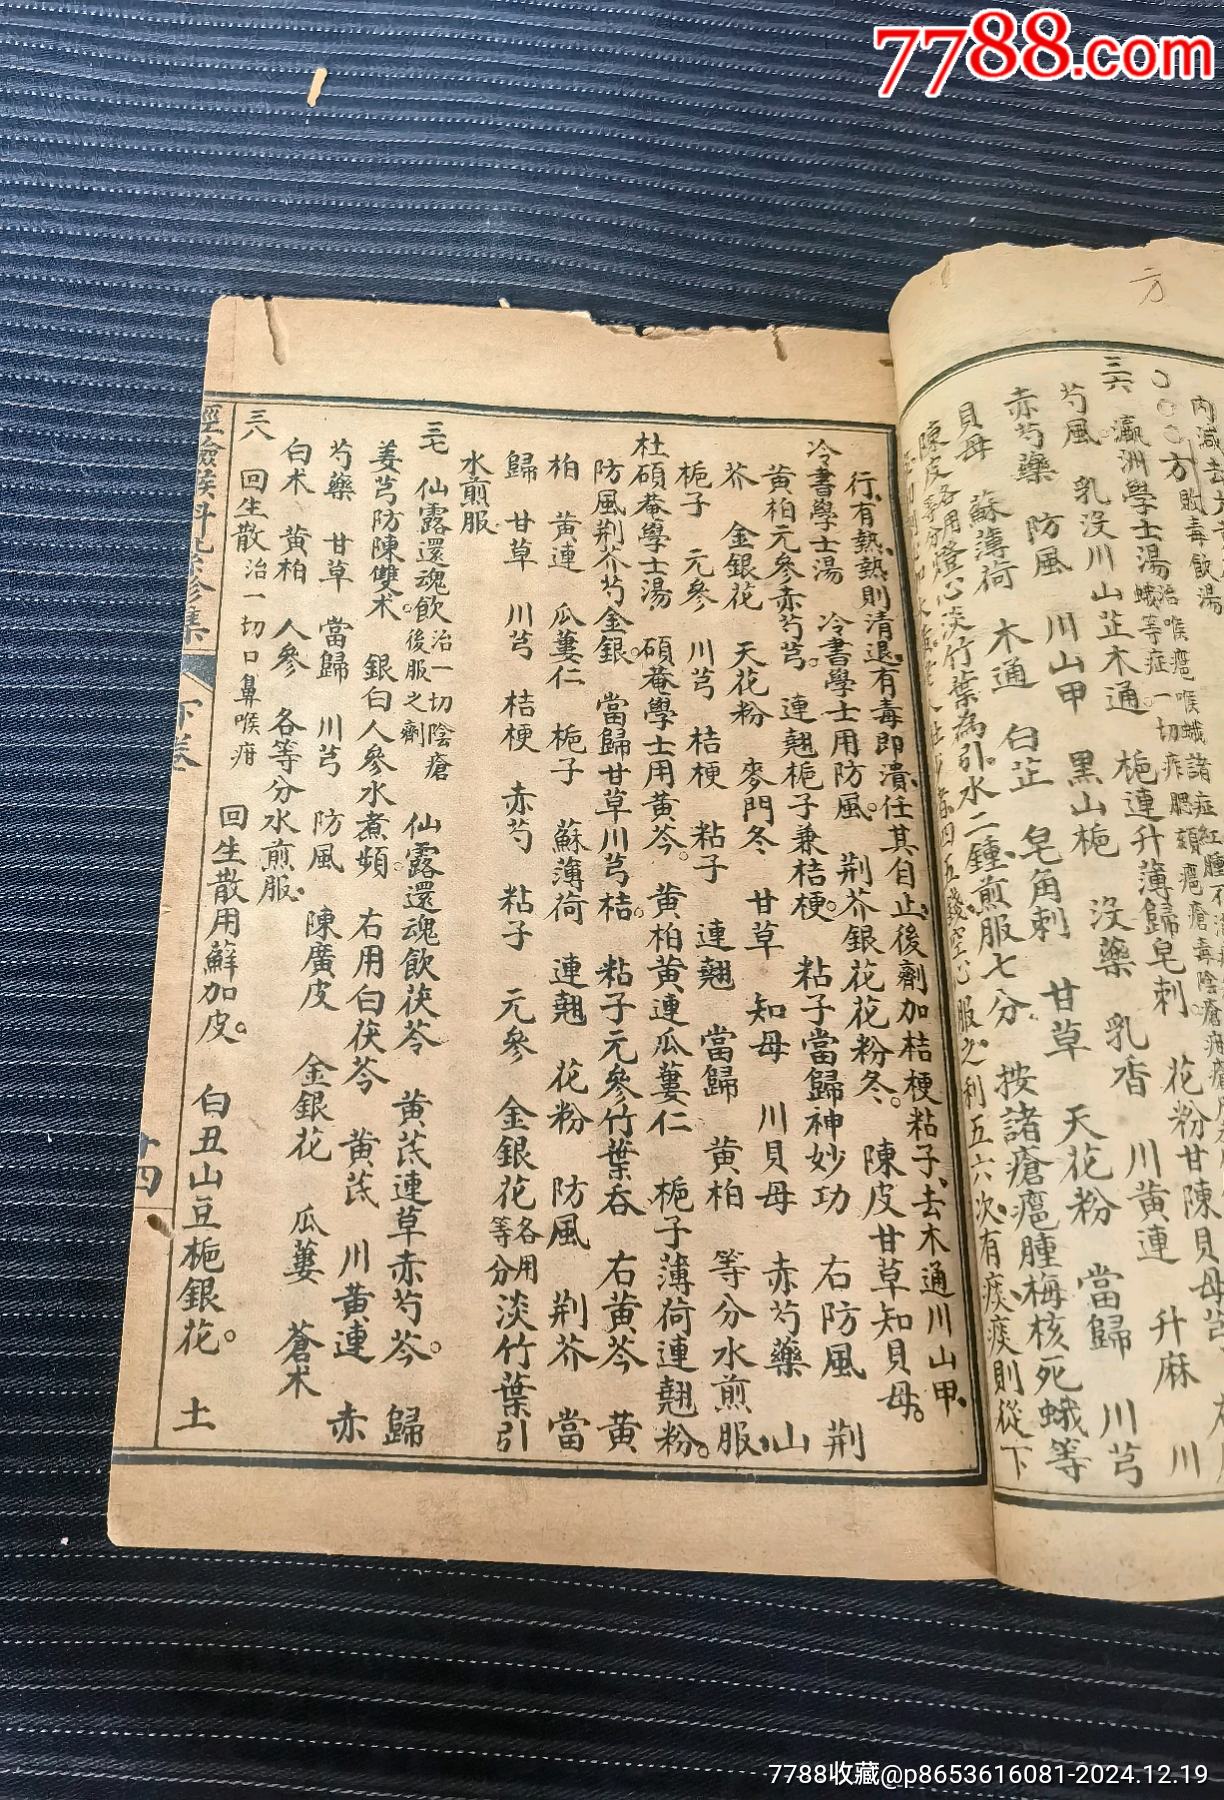 7788.com
方
內減去大黃
敗毒飲湯
〇〇〇方
三六 瀛洲學士湯 治喉癰喉蛾諸症紅腫不消
蛾等症一切疟腮頦癰瘡毒陰瘡疳瘡
梔連升薄歸皂刺 花粉甘陳貝母芎
芍風 乳沒川山芷木通 黑山梔 沒藥 乳香 川黃連 升麻 川
赤芍藥 防風 川山甲 皂角刺 甘草 天花粉 當歸 川芎
貝母 蘇薄荷 木通 白芷
按諸瘡癰腫梅核死蛾等
陳皮各等分用燈心淡竹葉為引水二鍾煎服七分
四五錢空心服之利五六次有痰痰則從下
行有熱熱則清退有毒即潰任其自止後劑加桔梗粘子去木通川山甲
冷書學士湯 冷書學士用防風 荆芥銀花花粉冬 陳皮甘草知貝母
黃柏元參赤芍芎 連翹梔子兼桔梗 粘子當歸神妙功 右防風 荆
芥 金銀花 天花粉 麥門冬 甘草 知母 川貝母 赤芍藥 山
梔子 元參 川芎 桔梗 粘子 連翹 當歸 黃柏 等分水煎服
杜碩菴學士湯 碩菴學士用黃芩 黃柏黃連瓜蔞仁 梔子薄荷連翹粉
防風荆芥芍金銀 當歸甘草川芎桔 粘子元參竹葉吞 右黃芩 黃
柏 黃連 瓜蔞仁 梔子 蘇薄荷 連翹 花粉 防風 荆芥 當
歸 甘草 川芎 桔梗 赤芍 粘子 元參 金銀花各用等分淡竹葉引
水煎服
三七 仙露還魂飲治一切陰瘡後服之劑 仙露還魂飲茯苓 黃芪連草赤芍芩 歸
姜芎防陳雙术 銀白人參水煮頻 右用白茯苓 黃芪 川黃連 赤
芍藥 甘草 當歸 川芎 防風 陳廣皮 金銀花 瓜蔞 蒼术
白术 黃柏 人參 各等分水煎服
三八 回生散治一切口鼻喉疳 回生散用蘚加皮 白丑山豆梔銀花 土
經驗喉科 珍集 下卷 十四
7788收藏@p8653616081-2024.12.19